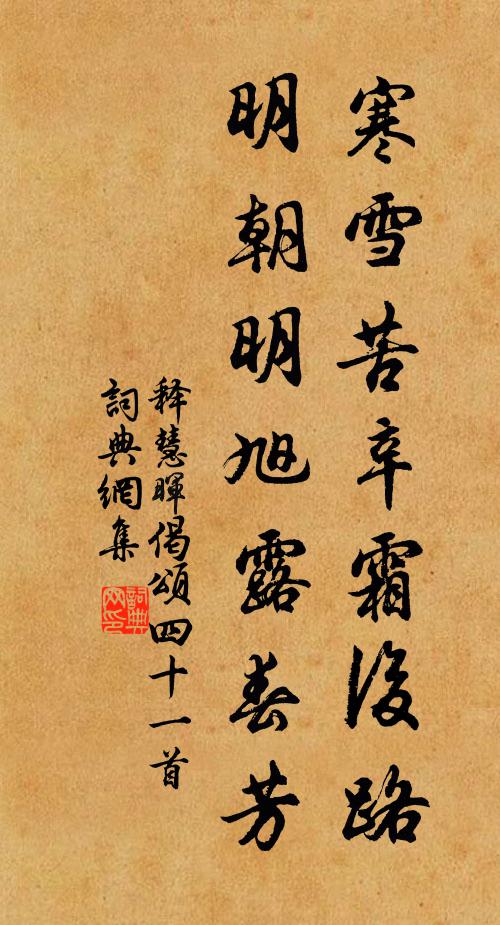 寒雪苦辛霜後路
明朝明旭露春芳
释慧暉偈頌四十一首
詞典網集
詞典网印